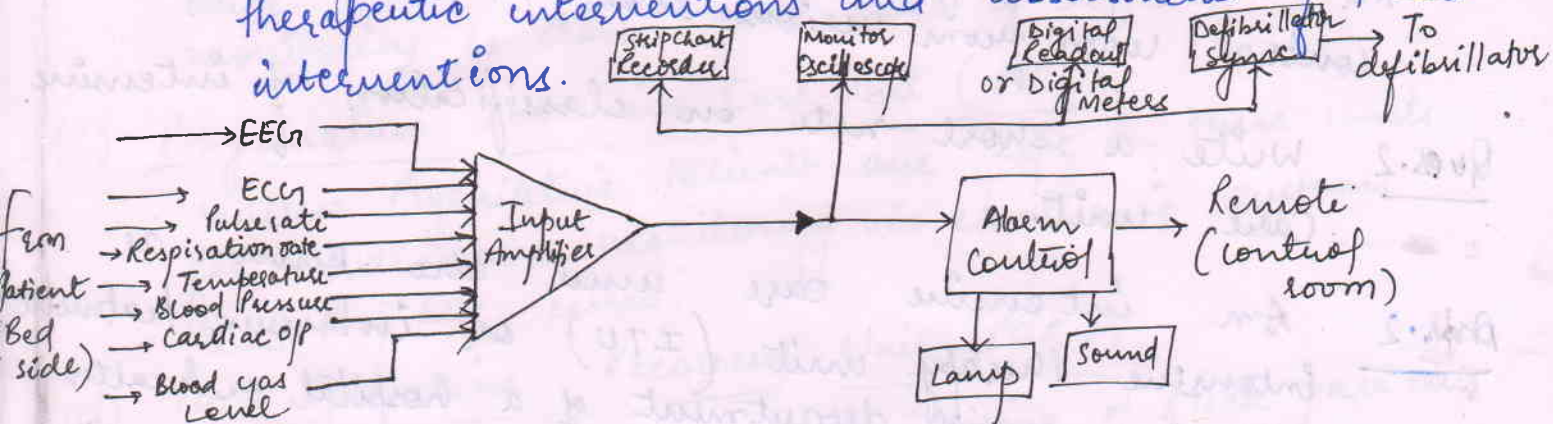 therapeutic interventions and
interventions.
Stripchart Recorder
Monitor Oscilloscope
Digital Readout
or Digital Meters
Defibrillator Sync
To defibrillator
From Patient Bed side)
EEG
ECG
Pulse rate
Respiration rate
Temperature
Blood Pressure
Cardiac o/p
Blood gas Level
Input Amplifier
Alarm Control
Remote (control room)
Lamp
Sound